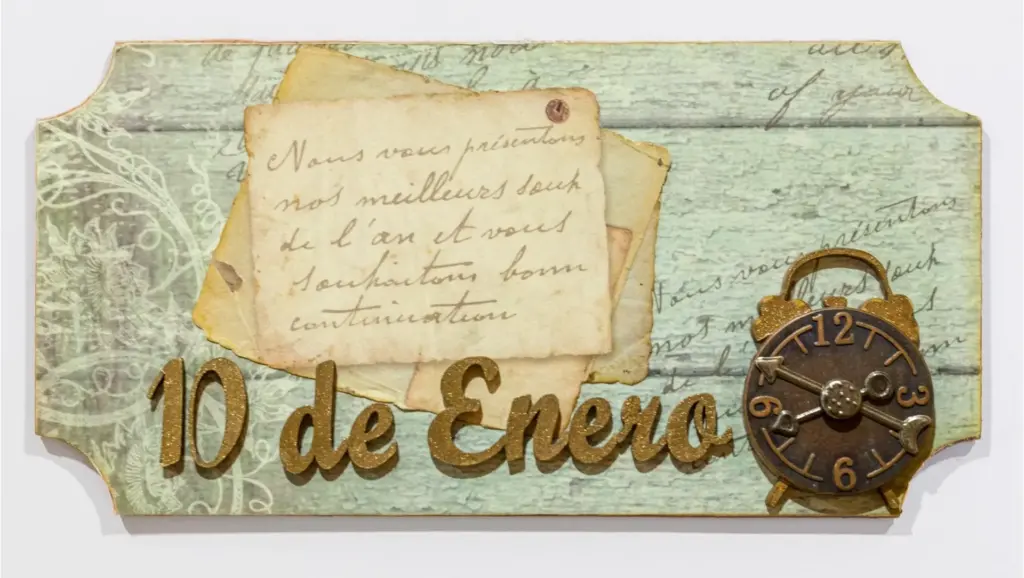 Nous vous présentons
nos meilleurs souh
de l'an et vous
souhaitons bonn
continuation
Nous vous présentons
nos meilleurs souh
de l'
10 de Enero
12
3
6
9